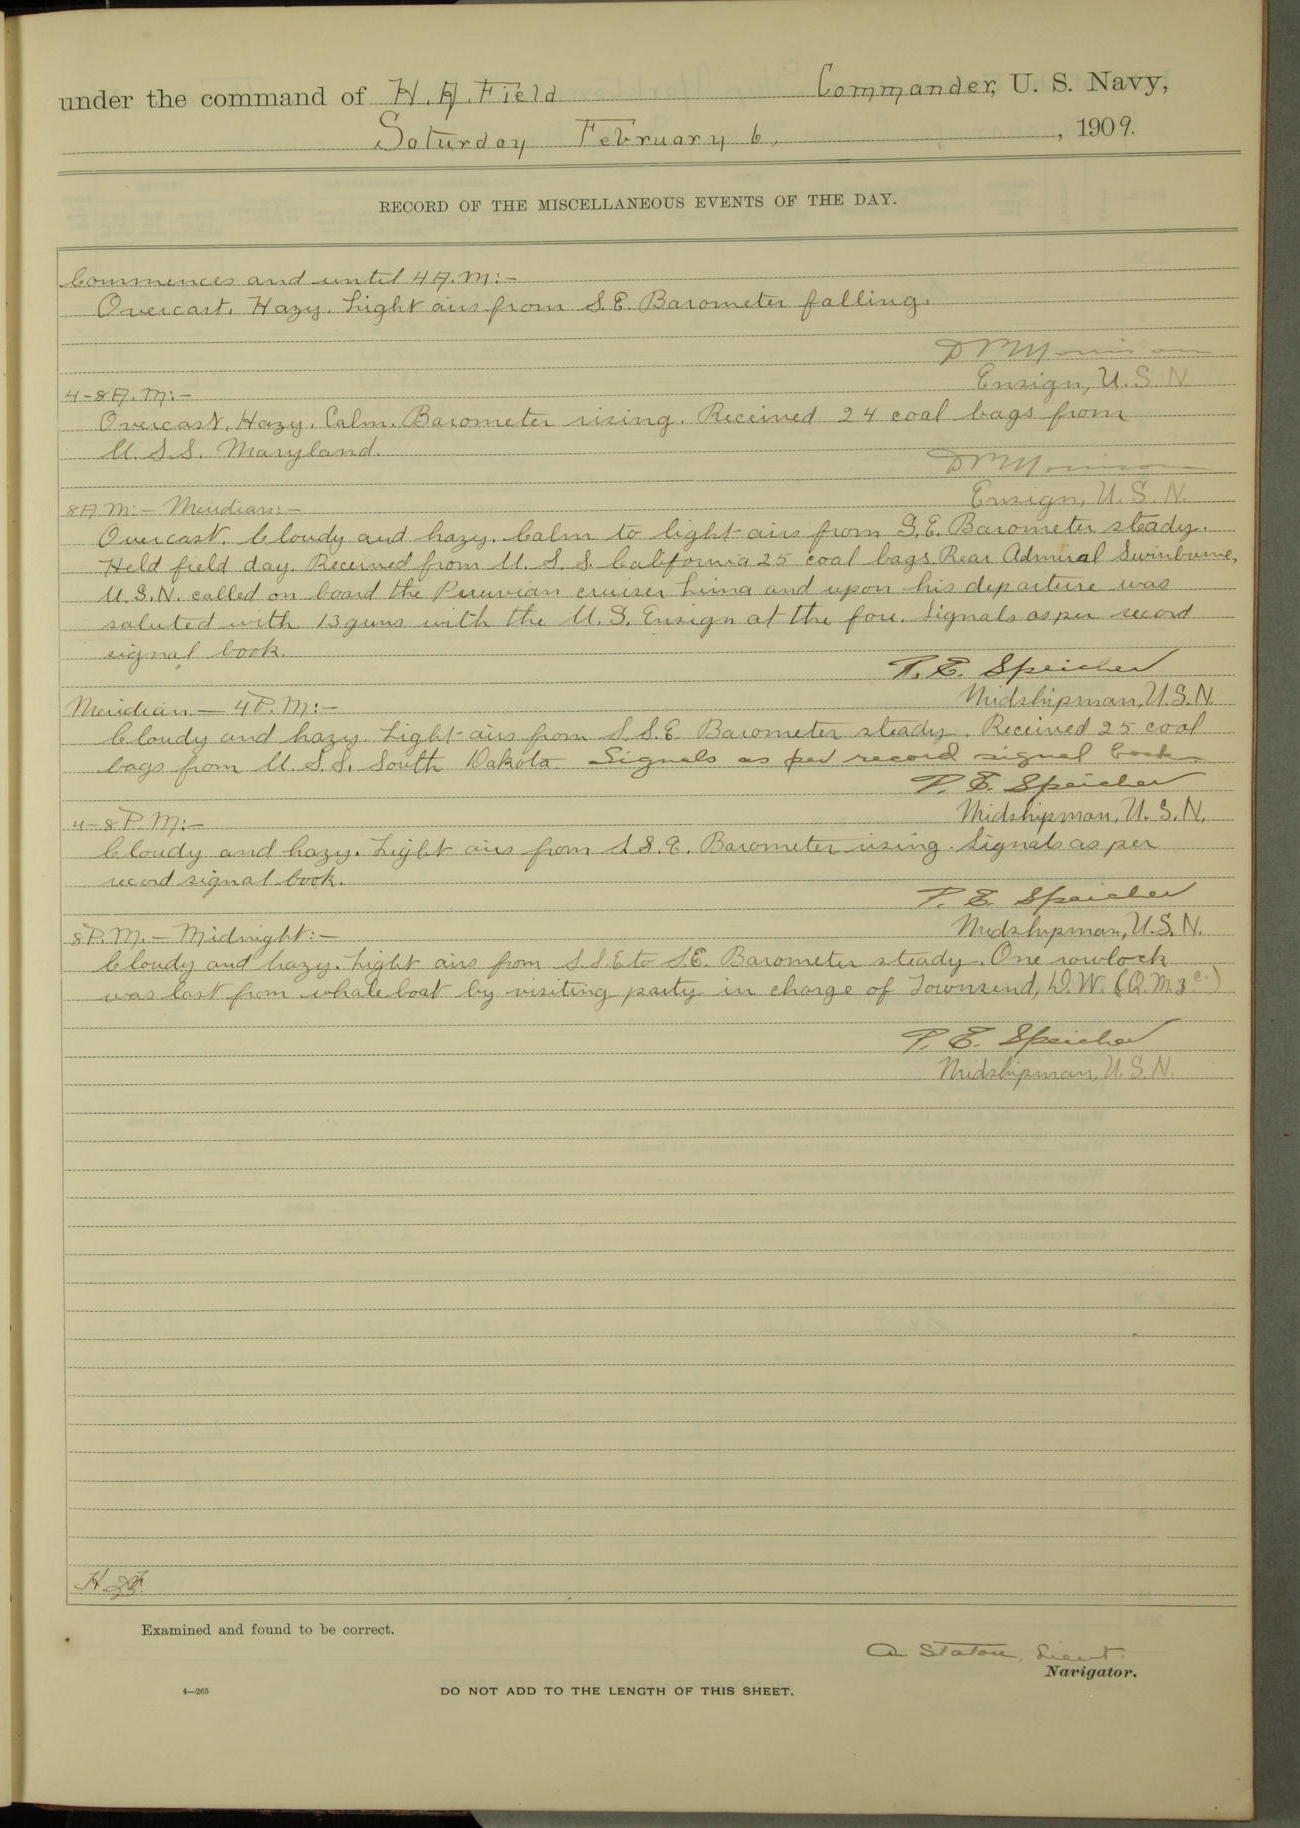 under the command of H. A. Field Commander, U. S. Navy,
Saturday February 6, , 1909.
RECORD OF THE MISCELLANEOUS EVENTS OF THE DAY.
Commences and until 4 A.M:-
Overcast. Hazy. Light airs from S.E. Barometer falling.
Ensign, U.S.N.
4-8 A.M:-
Overcast, Hazy. Calm. Barometer rising. Received 24 coal bags from
U.S.S. Maryland.
Ensign, U.S.N.
8 A.M:- Meridian:-
Overcast. Cloudy and hazy. Calm to light airs from S.E. Barometer steady.
Held field day. Received from U.S.S. California 25 coal bags. Rear Admiral Swinburne,
U.S.N. called on board the Peruvian cruiser Lima and upon his departure was
saluted with 13 guns with the U.S. Ensign at the fore. Signals as per record
signal book.
P. E. Speicher
Midshipman, U.S.N.
Meridian - 4 P.M:-
Cloudy and hazy. Light airs from S.S.E. Barometer steady. Received 25 coal
bags from U.S.S. South Dakota. Signals as per record signal book
P. E. Speicher
Midshipman, U.S.N.
4-8 P.M:-
Cloudy and hazy. Light airs from S.S.E. Barometer rising. Signals as per
record signal book.
P. E. Speicher
Midshipman, U.S.N.
8 P.M. - Midnight:-
Cloudy and hazy. Light airs from S.S.E to S.E. Barometer steady. One rowlock
was lost from whaleboat by visiting party in charge of Townsend, W. (Q.M.3c.)
P. E. Speicher
Midshipman, U.S.N.
Examined and found to be correct.
A Staton, Lieut.
Navigator.
4—265
DO NOT ADD TO THE LENGTH OF THIS SHEET.